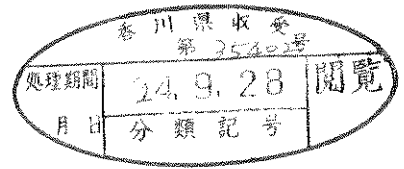 香川県収受
第35402号
処理期間
24.9.28
閲覧
月 日
分類記号